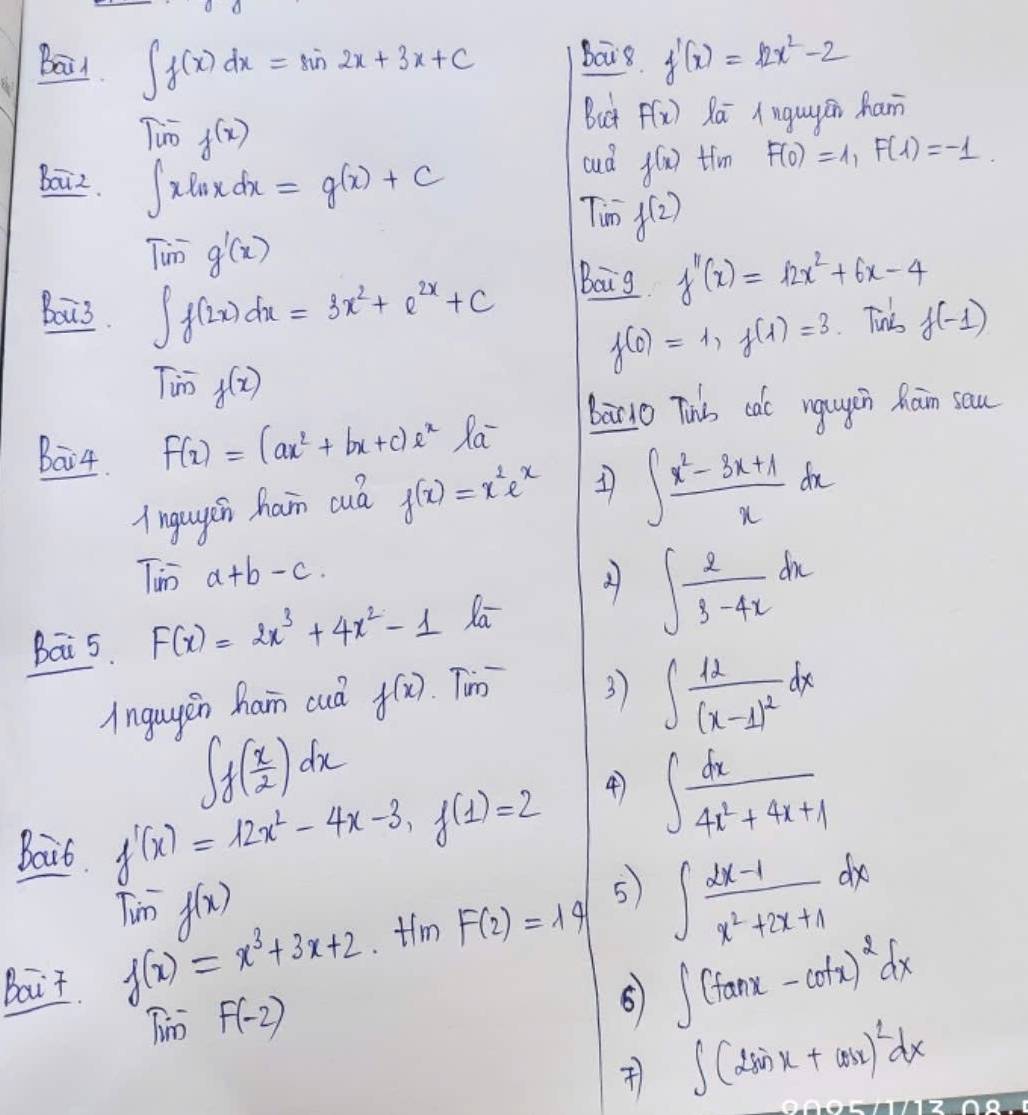 Bài 1. ∫f(x) dx = sin 2x + 3x + C
Tìm f(x)
Bài 2. ∫x lnx dx = g(x) + C
Tìm g'(x)
Bài 3. ∫f(2x) dx = 3x² + e^{2x} + C
Tìm f(x)
Bài 4. F(x) = (ax² + bx + c)e^x là
1 nguyên hàm của f(x) = x²e^x
Tìm a+b-c.
Bài 5. F(x) = 2x³ + 4x² - 1 là
1 nguyên hàm của f(x). Tìm
∫f(x/2) dx
Bài 6. f'(x) = 12x² - 4x - 3, f(1) = 2
Tìm f(x)
Bài 7. f(x) = x³ + 3x + 2. thm F(2) = 14
Tìm F(-2)
Bài 8. f'(x) = 12x² - 2
Biết F(x) là 1 nguyên hàm
của f(x) thm F(0) = 1, F(1) = -1.
Tìm f(2)
Bài 9. f''(x) = 12x² + 6x - 4
f(0) = 1, f(1) = 3. Tính f(-1)
Bài 10 Tính các nguyên hàm sau
1) ∫(x² - 3x + 1)/x dx
2) ∫2/(3 - 4x) dx
3) ∫12/(x - 1)² dx
4) ∫dx/(4x² + 4x + 1)
5) ∫(2x - 1)/(x² + 2x + 1) dx
6) ∫(tanx - cotx)² dx
7) ∫(2sin x + cosx)² dx